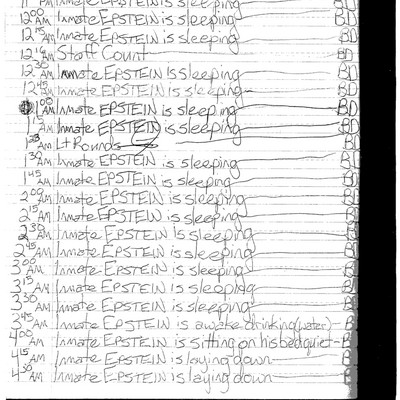 PM Inmate EPSTEIN is sleeping BD
12 00 AM Inmate EPSTEIN is sleeping BD
12 15 AM Inmate EPSTEIN is sleeping BD
AM Staff Count BD
12 30 AM Inmate EPSTEIN Is sleeping BD
12 45 AM Inmate EPSTEIN is sleeping BD
1 00 AM Inmate EPSTEIN is sleeping BD
1 15 AM Inmate EPSTEIN is sleeping BD
AM Lt Rounds BD
1 30 AM Inmate EPSTEIN is sleeping BD
1 45 AM Inmate EPSTEIN is sleeping BD
2 00 AM Inmate EPSTEIN is sleeping BD
2 15 AM Inmate EPSTEIN is sleeping BD
2 30 AM Inmate EPSTEIN is sleeping BD
2 45 AM Inmate EPSTEIN is sleeping BD
3 00 AM Inmate EPSTEIN is sleeping BD
3 15 AM Inmate EPSTEIN is sleeping BD
3 30 AM Inmate EPSTEIN is sleeping BD
3 45 AM Inmate EPSTEIN is awake drinking (water) B
4 00 AM Inmate EPSTEIN is sitting on his bed quiet B
4 15 AM Inmate EPSTEIN is laying down B
4 30 AM Inmate EPSTEIN is laying down B